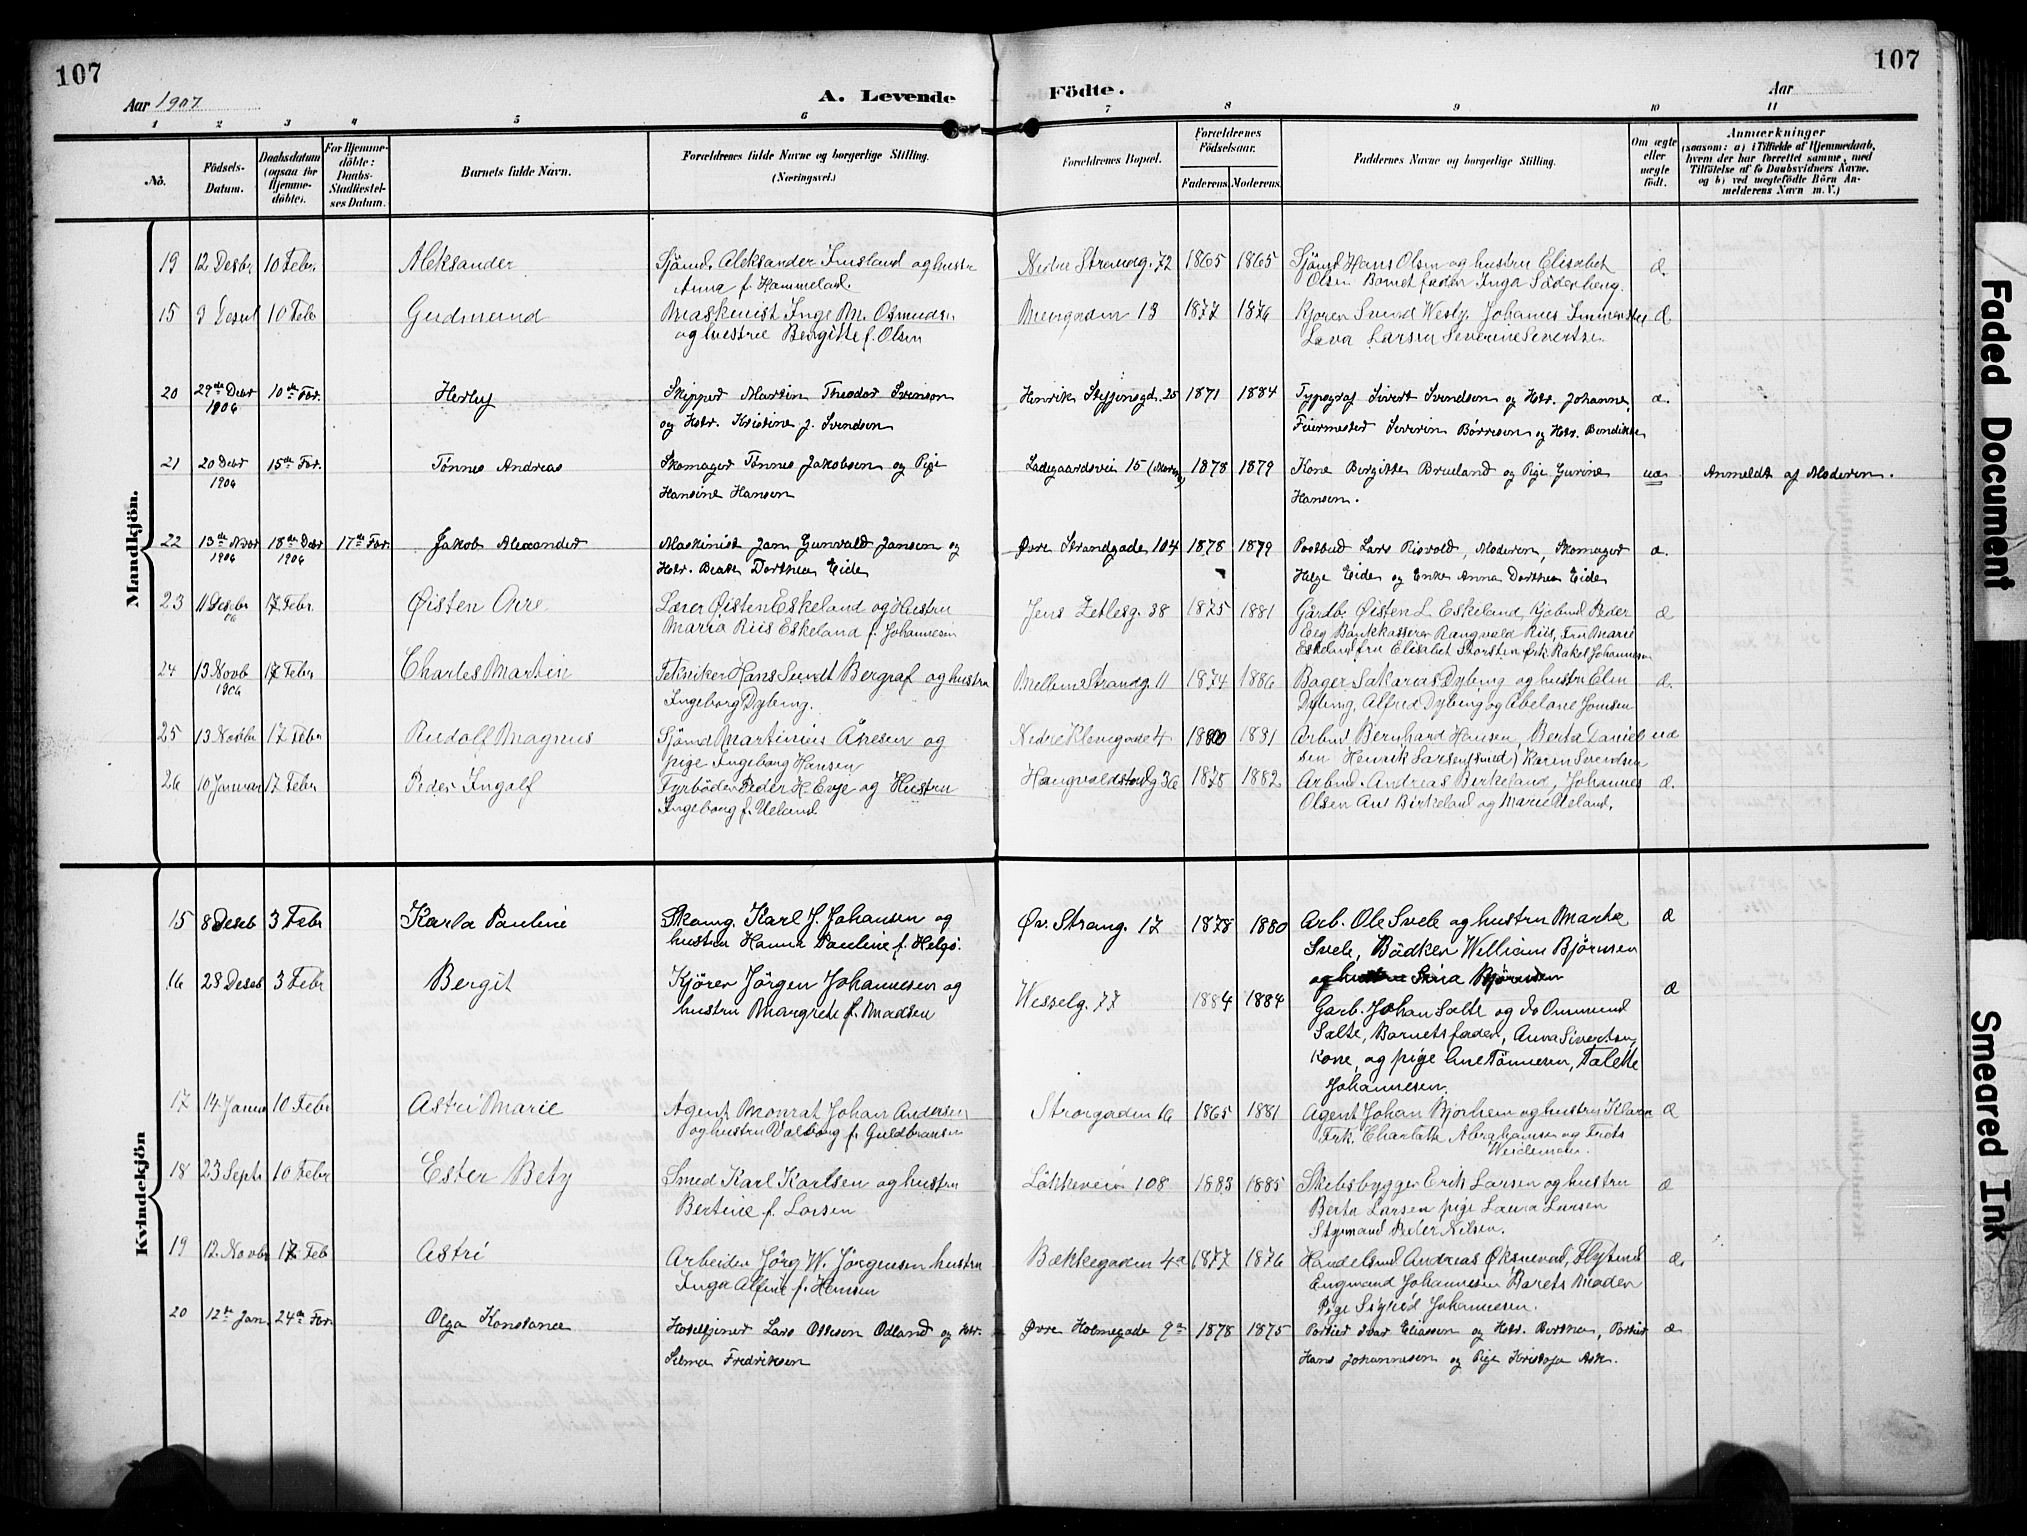 107
107
Aar 1907
A. Levende
Födte.
Aar
1 2 3 4 5 6 7 8 9 10 11
No.
Födsels-Datum.
Daabsdatum (ogsaa for Hjemmedöbte).
For Hjemmedöbte: Daabs-Stadfæstelses Datum.
Barnets fulde Navn.
Forældrenes fulde Navne og borgerlige Stilling. (Næringsvei.)
Forældrenes Bopæl.
Forældrenes Födselsaar.
Faderens. Moderens.
Faddernes Navne og borgerlige Stilling.
Om ægte eller uægte födt.
Anmærkninger (saasom: a) i Tilfælde af Hjemmedaab, hvem der har forrettet samme, med Tilföielse af to Daabsvidners Navne. og b) ved uægtefödte Börn Anmelderens Navn m. V.)
Mandkjön.
19 12 Desbr 10 Febr Aleksander Sjömd. Aleksander Insland og hustr Nedre Strandg. 72 1865 1865 Sjömd Hans Olsen og hustru Elisabet æ.
Anna f. Hammeland. Olsen Barnets fader Inga Söderberg.
15 9 Desbr 10 Febr Gudmund Maskinist Inge M. Osmundsen 13 1877 1876 Kjörer Svend Westly Johannes æ
og hustru Bergitte f. Olsen Lava Larsen Severine Severtsen
20 29de Debr 1906 10de Fbr. Herley Skipper Martin Theodor Svenson Henrik Steffensgd. 25 1871 1884 Typograf Sivert Svendsen og Hstr. Johanne, æ.
og Hstr. Kristine f. Svendsen Feiermester Severin Börresen og Hstr. Bendikte
21 20 Debr 1906 15de Fbr. Tönnes Andreas Skomager Tönnes Jakobsen og Pige Ladegaardsvein 15 1878 1879 Kone Bergitte Brueland og Pige Gurine uæ. Anmeldt af Moderen.
Hansine Hansen Hansen.
22 13de Nvbr 1906 18de Debr 1906 17de Fbr. Jakob Alexander Maskinist Jan Gunvald Jansen og Øvre Strandgade 104 1878 1879 Postbud Lars Risvold, Moderen, Skomager æ.
Hstr. Beate Dorthea Eide Helge Eide og Enke Anna Dorthea Eide
23 11 Desbr 06 17 Febr Øisten Orre Lærer Øisten Eskeland og Hustru Jens Zetlesg. 38 1875 1881 Gårdb. Øisten L. Eskeland, Kjøbmd Peder æ
Maria Riis Eskeland f. Johannesen Eeg Bankkasserer Rangvald Riis, Fru Marie
Eskeland fru Elisabet Torsten Frk. Rakel Johannesen
24 13 Novb 1906 17 Febr Charles Martin Tekniker Hans Sundt Bergraf og hustru Mellem Strandg. 11 1874 1886 Bager Sakarias Dybing og hustru Elen æ.
Ingeborg Dybing. Dybing, Alfred Dybing og Abelane Jonsen
25 13 Novbr 17 Febr Rudolf Magnus Sjömd Martinius Ånesen og Nedre Klevegade 4 1880 1881 Arbmd Bernhard Hansen, Berta Daniel uæ
pige Ingeborg Hansen sen Henrik Larsen (smed) Karen Svendsen
26 10 Januar 17 Febr Peder Ingolf Fyrböder Peder H. Evje og Hustru Haugvaldstadg 36 1878 1882 Arbmd. Andreas Birkeland, Johannes æ.
Ingeborg f. Ueland Olsen Ane Birkeland og Marie Ueland.
Kvindekjön
15 8 Deseb 3 Febr Karla Pauline Skomg. Karl J. Johansen og Øv. Strang. 17 1878 1880 Arb. Ole Svele og hustru Marta æ
hustru Hanna Pauline f. Helgö. Svele, Bödker William Björnsen
og hustru Björnsen
16 28 Deseb 3 Febr Bergit Kjörer Jörgen Johannesen og Wesselg. 77 1884 1884 æ
hustru Margrete f. Madsen Garb. Johan Salte og do Ommund
Salte, Barnets fader, Anna Sivertsen,
Kone, og pige Ane Tönnesen, Talette
Johannesen
17 14 Januar 10 Febr Astri Marie Agent Monrat Johan Andersen Storgaden 16 1865 1881 Agent Johan Bjorheim og hustru Klara æ
og hustru Valborg f. Guldbransen Frk. Charlotte Abrahamsen og Frøts
Weidemann.
18 23 Septr 10 Febr Ester Bety Smed Karl Karlsen og hustru Lökkeveien 108 1883 1885 Skibsbygger Erik Larsen og hustru æ
Bertine f. Larsen Berta Larsen pige Laura Larsen
Styrmand Peder Nilsen.
19 12 Novbr 17 Feb Astri Arbeider Jörg W. Jörgensen hustru Bækkegaden 4a 1877 1876 Handelsmd Andreas Øksnevad, æ.
Inga Alfine f. Hansen Engmand Johannesen Barets Moder
Pige Sigrid Johannesen.
20 12te Jan. 24de Fbr. Olga Konstance Hotelejener Lars Ottesen Odland og Hstr. Øvre Holmegade 9a 1878 1875 Portier Ivar Eliassen og Hstr. Berthea, Portier æ
Selma Fredriksen Hans Johannesen og Pige Kristofa Ask.
Faded Document
Smeared Ink